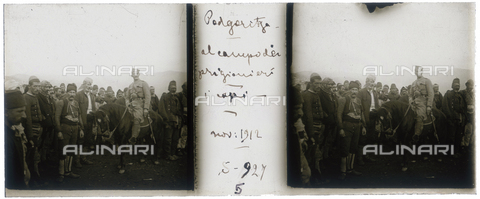 Podgoritza
al campo dei
prigionieri
i capi —
nov: 1912
S-927
5
ALINARI
ALINARI
ALINARI
ALINARI